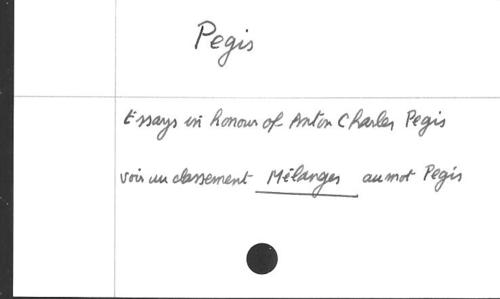 Pegis
Essays in honour of Anton Charles Pegis
voir au classement Mélanges au mot Pegis